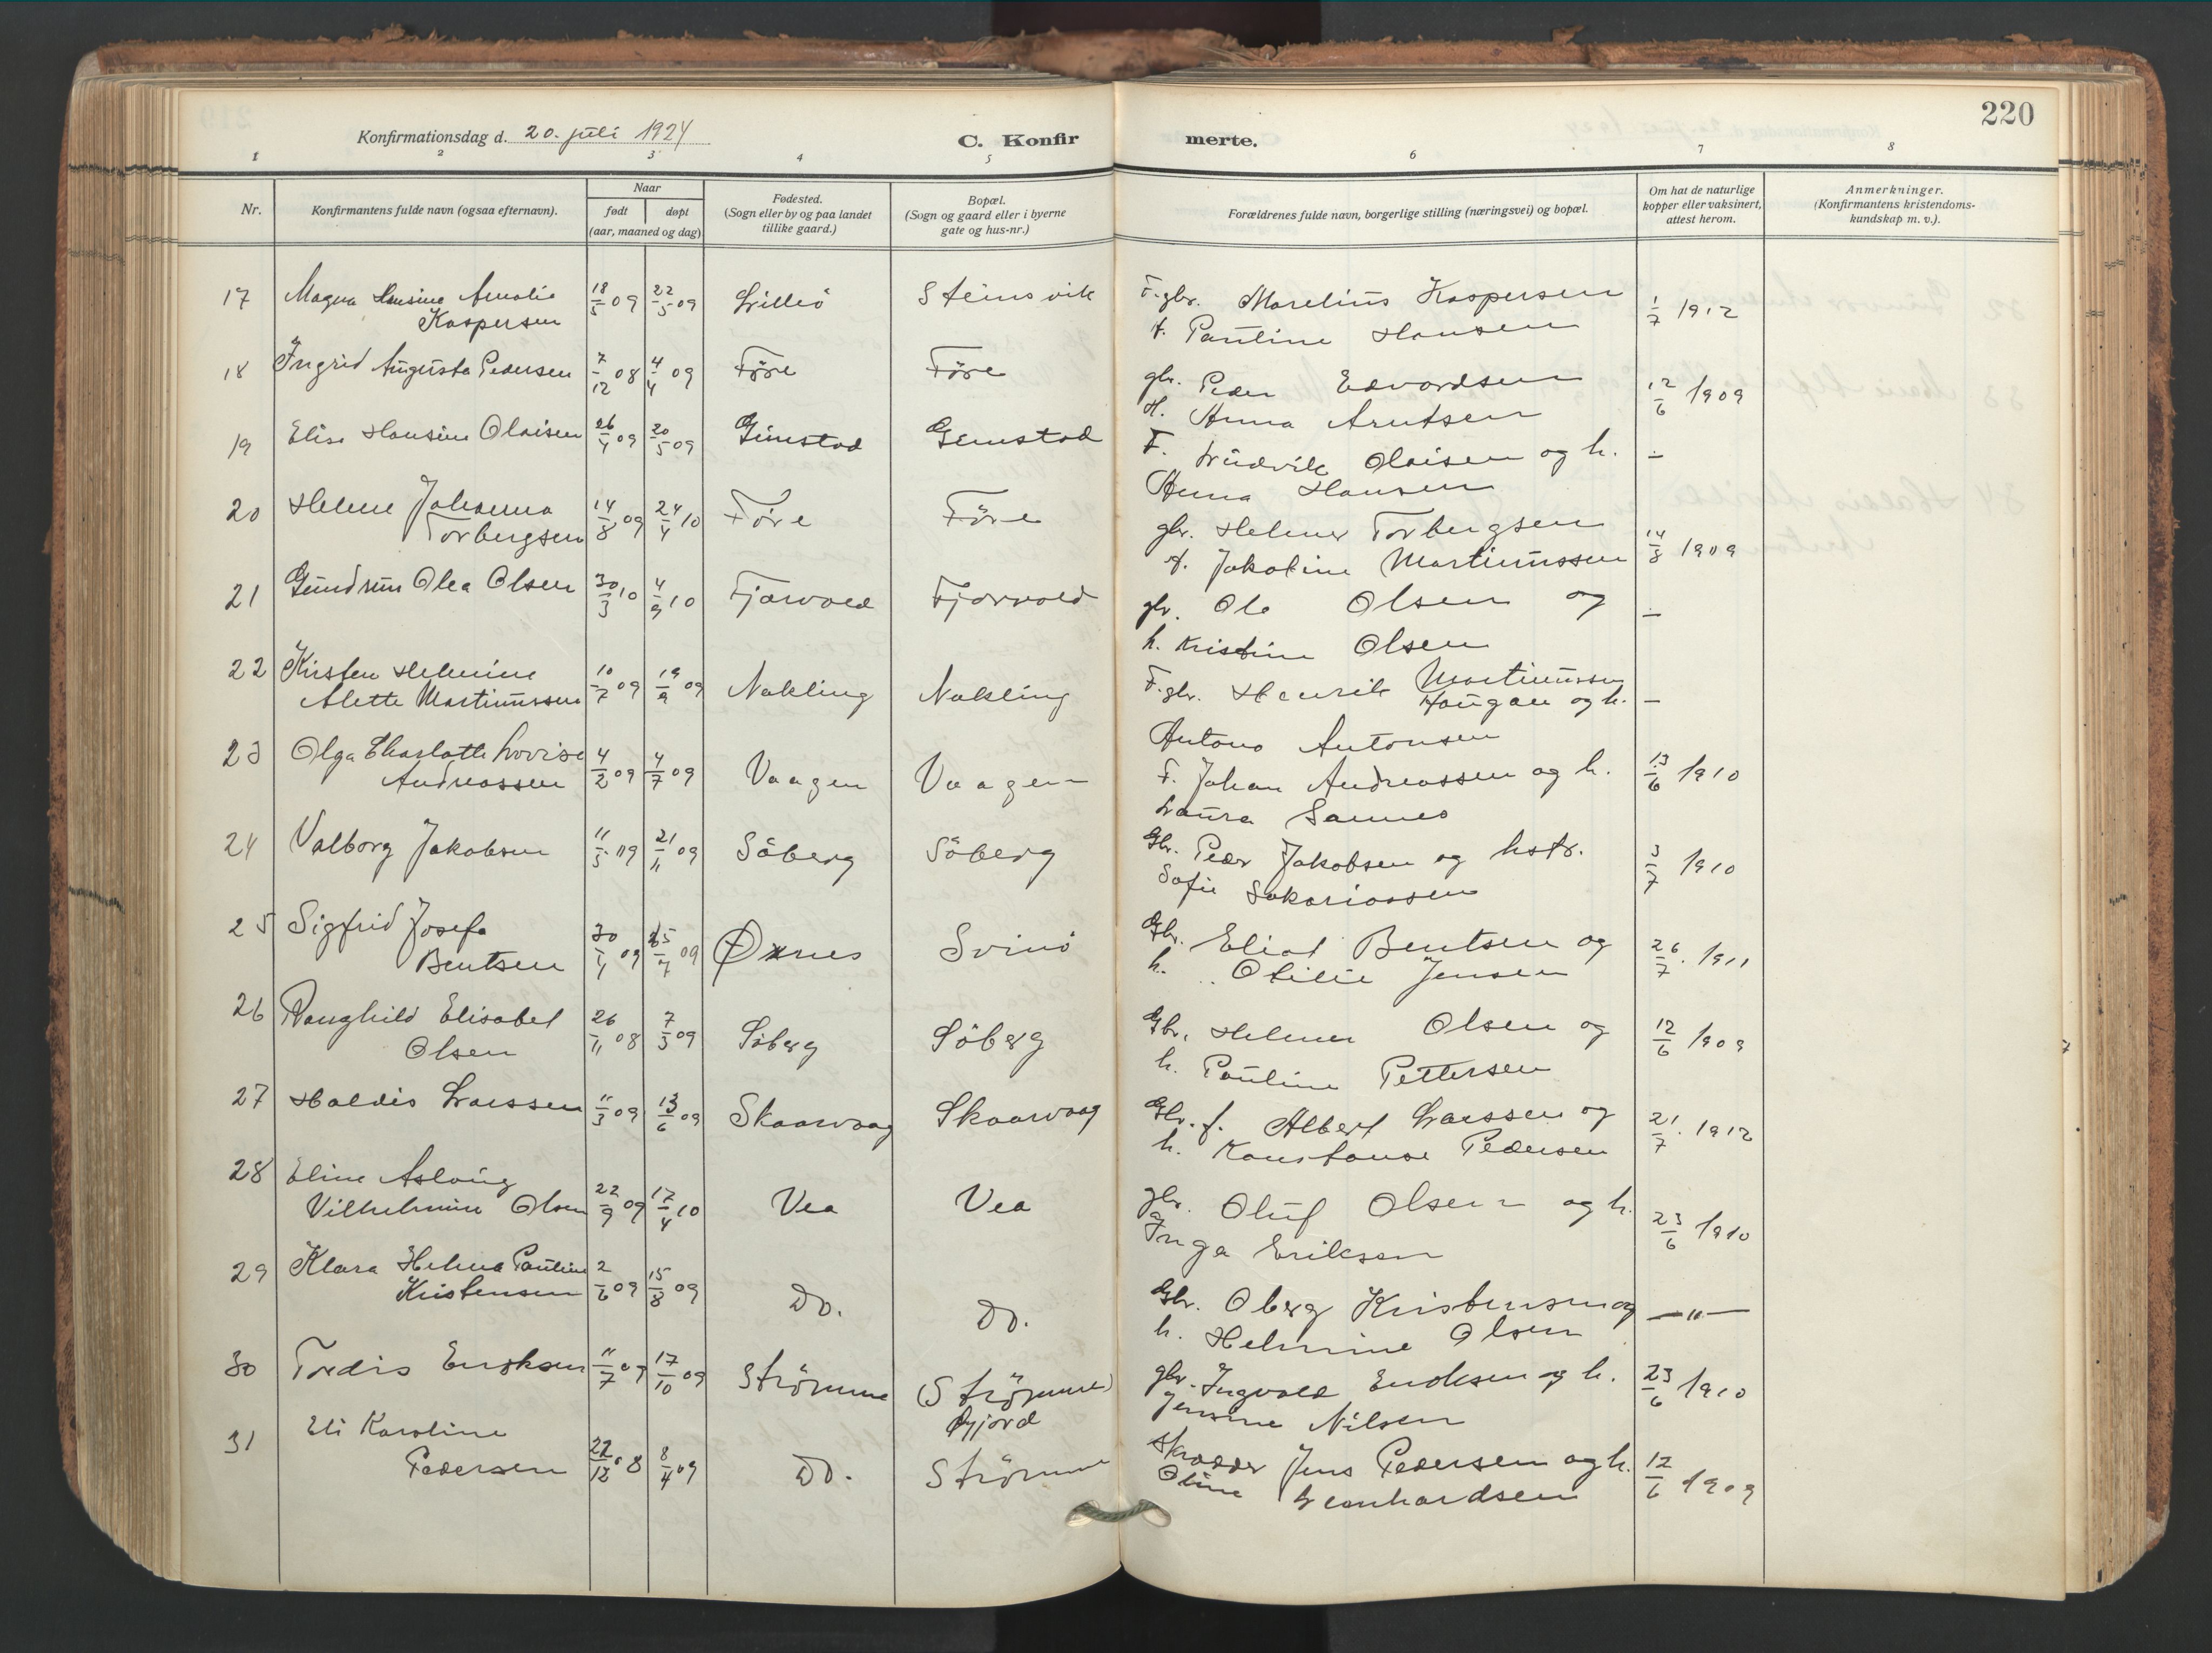 220
Konfirmationsdag d. 20. juli 1924
C. Konfirmerte.
1 2 3 4 5 6 7 8
Nr.
Konfirmantens fulde navn (ogsaa efternavn).
Naar
født døpt
(aar, maaned og dag)
Fødested.
(Sogn eller by og paa landet
tillike gaard.)
Bopæl.
(Sogn og gaard eller i byerne
gate og hus-nr.)
Forældrenes fulde navn, borgerlige stilling (næringsvei) og bopæl.
Om hat de naturlige
kopper eller vaksinert,
attest herom.
Anmerkninger.
(Konfirmantens kristendoms-
kundskap m. v.).
17 Magna Hansine Amalie 18/5 09 22/5 09 Lilleö Steinsvik F.gbr. Marelius Kaspersen 1/7 1912
Kaspersen H. Pauline Hansen
18 Ingrid Augusta Pedersen 7/12 08 4/4 09 Före Före gbr. Peder Edvardsen 12/6 1909
H. Anna Arntsen
19 Elise Hansine Olaisen 26/4 09 20/5 09 Gimstad Gimstad F. Ludvik Olaisen og h. –
Anna Hansen
20 Helene Johanna 14/8 09 24/4 10 Före Före gbr. Helmer Torbergsen 14/8 1909
Torbergsen H. Jakobine Martinussen
21 Gundrun Olea Olsen 30/3 10 4/9 10 Fjærvold Fjærvold gbr. Ole Olsen og –
h. Kristine Olsen
22 Kirsten Helmine 10/7 09 19/9 09 Nakling Nakling F.gbr. Henrik Martinussen
Alette Martinussen Haugan og h. –
Antona Antonsen
23 Olga Charlotte Lovise 4/2 09 4/7 09 Vaagen Vaagen F. Johan Andreassen og h. 13/6 1910
Andreassen Laura Sannes
24 Valborg Jakobsen 11/5 09 21/11 09 Söberg Söberg Gbr. Peder Jakobsen og hstr. 3/7 1910
Sofie Sakariassen
25 Sigfrid Josefa 09 09 Øxnes Svinö Gbr. Eliot Bentsen og 26/7. 1911
Bentsen h. Otilie Jensen
26 Ranghild Elisabet 26/11 08 7/3 09 Söberg Söberg Gbr. Helmer Olsen og 12/6 1909
Olsen h. Pauline Pettersen
27 Haldis Larssen 11/3 09 13/6 09 Skaarvaag Skaarvaag Gbr. f. Albert Larssen og 21/7. 1912
h. Konstanse Pedersen
28 Eline Aslaug 22/9 09 17/4 10 Vea Vea gbr. Oluf Olsen og h. 23/6 1910
Vilhelmine Olsen Inga Eriksen
29 Klara Helma Pauline 2/6 09 15/8 09 Do. Do. Gbr. Oberg Kristensen og – " –
Kristensen h. Helmine Olsen
30 Tordis Enoksen 11/7 09 17/10 09 Strömme (Strömme) gbr. Ingvald Enoksen og h. 23/6 1910
Gjord Jensine Nilsen
31 Eli Karoline 22/12 08 8/4 09 Do. Strömme skrædder Jens Pedersen og h. 12/6 1909
Pedersen Oline Leonhardsen